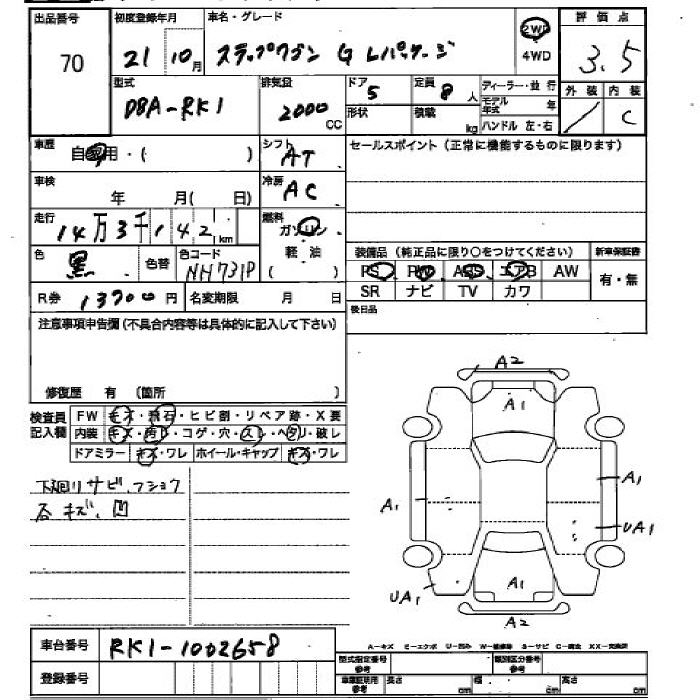 出品番号 初度登録年月 車名・グレード 評価点
70 21 10月 ステップワゴン G Lパッケージ 2WD 4WD 3.5
型式 排気量 ドア 5 定員 8人 ディーラー・並行 外装 内装
DBA-RK1 2000CC 形状 積載 kg モデル年式 年 ハンドル 左・右 / C
車歴 自家用・( ) シフト AT セールスポイント(正常に機能するものに限ります)
車検 年 月( 日) 冷房 AC
走行 14万3千142km 燃料 ガソリン 軽油 ( )
色 黒 色替 色コード NH731P 装備品(純正品に限り○をつけてください) 新車保証書
PS PW ABS エアB AW 有・無
R券 13700円 名変期限 月 日 SR ナビ TV カワ
注意事項申告欄(不具合内容等は具体的に記入して下さい) 後日品
修復歴 有 (箇所 )
検査員記入欄 FW キズ・飛石・ヒビ割・リペア跡・X要
内装 キズ・汚れ・コゲ・穴・スレ・ヘタリ・破レ
ドアミラー キズ・ワレ ホイール・キャップ キズ・ワレ
下廻りサビ、フショク
キズ、凹
A2
A1
A1
A1
UA1
UA1
A1
A2
車台番号 RK1-1002658
A-キズ E-エクボ U-凹み W-補修跡 S-サビ C-腐食 XX-交換済
登録番号 型式指定番号 参考 類別区分番号 参考
車庫証明用 参考 長さ cm 幅 cm 高さ cm